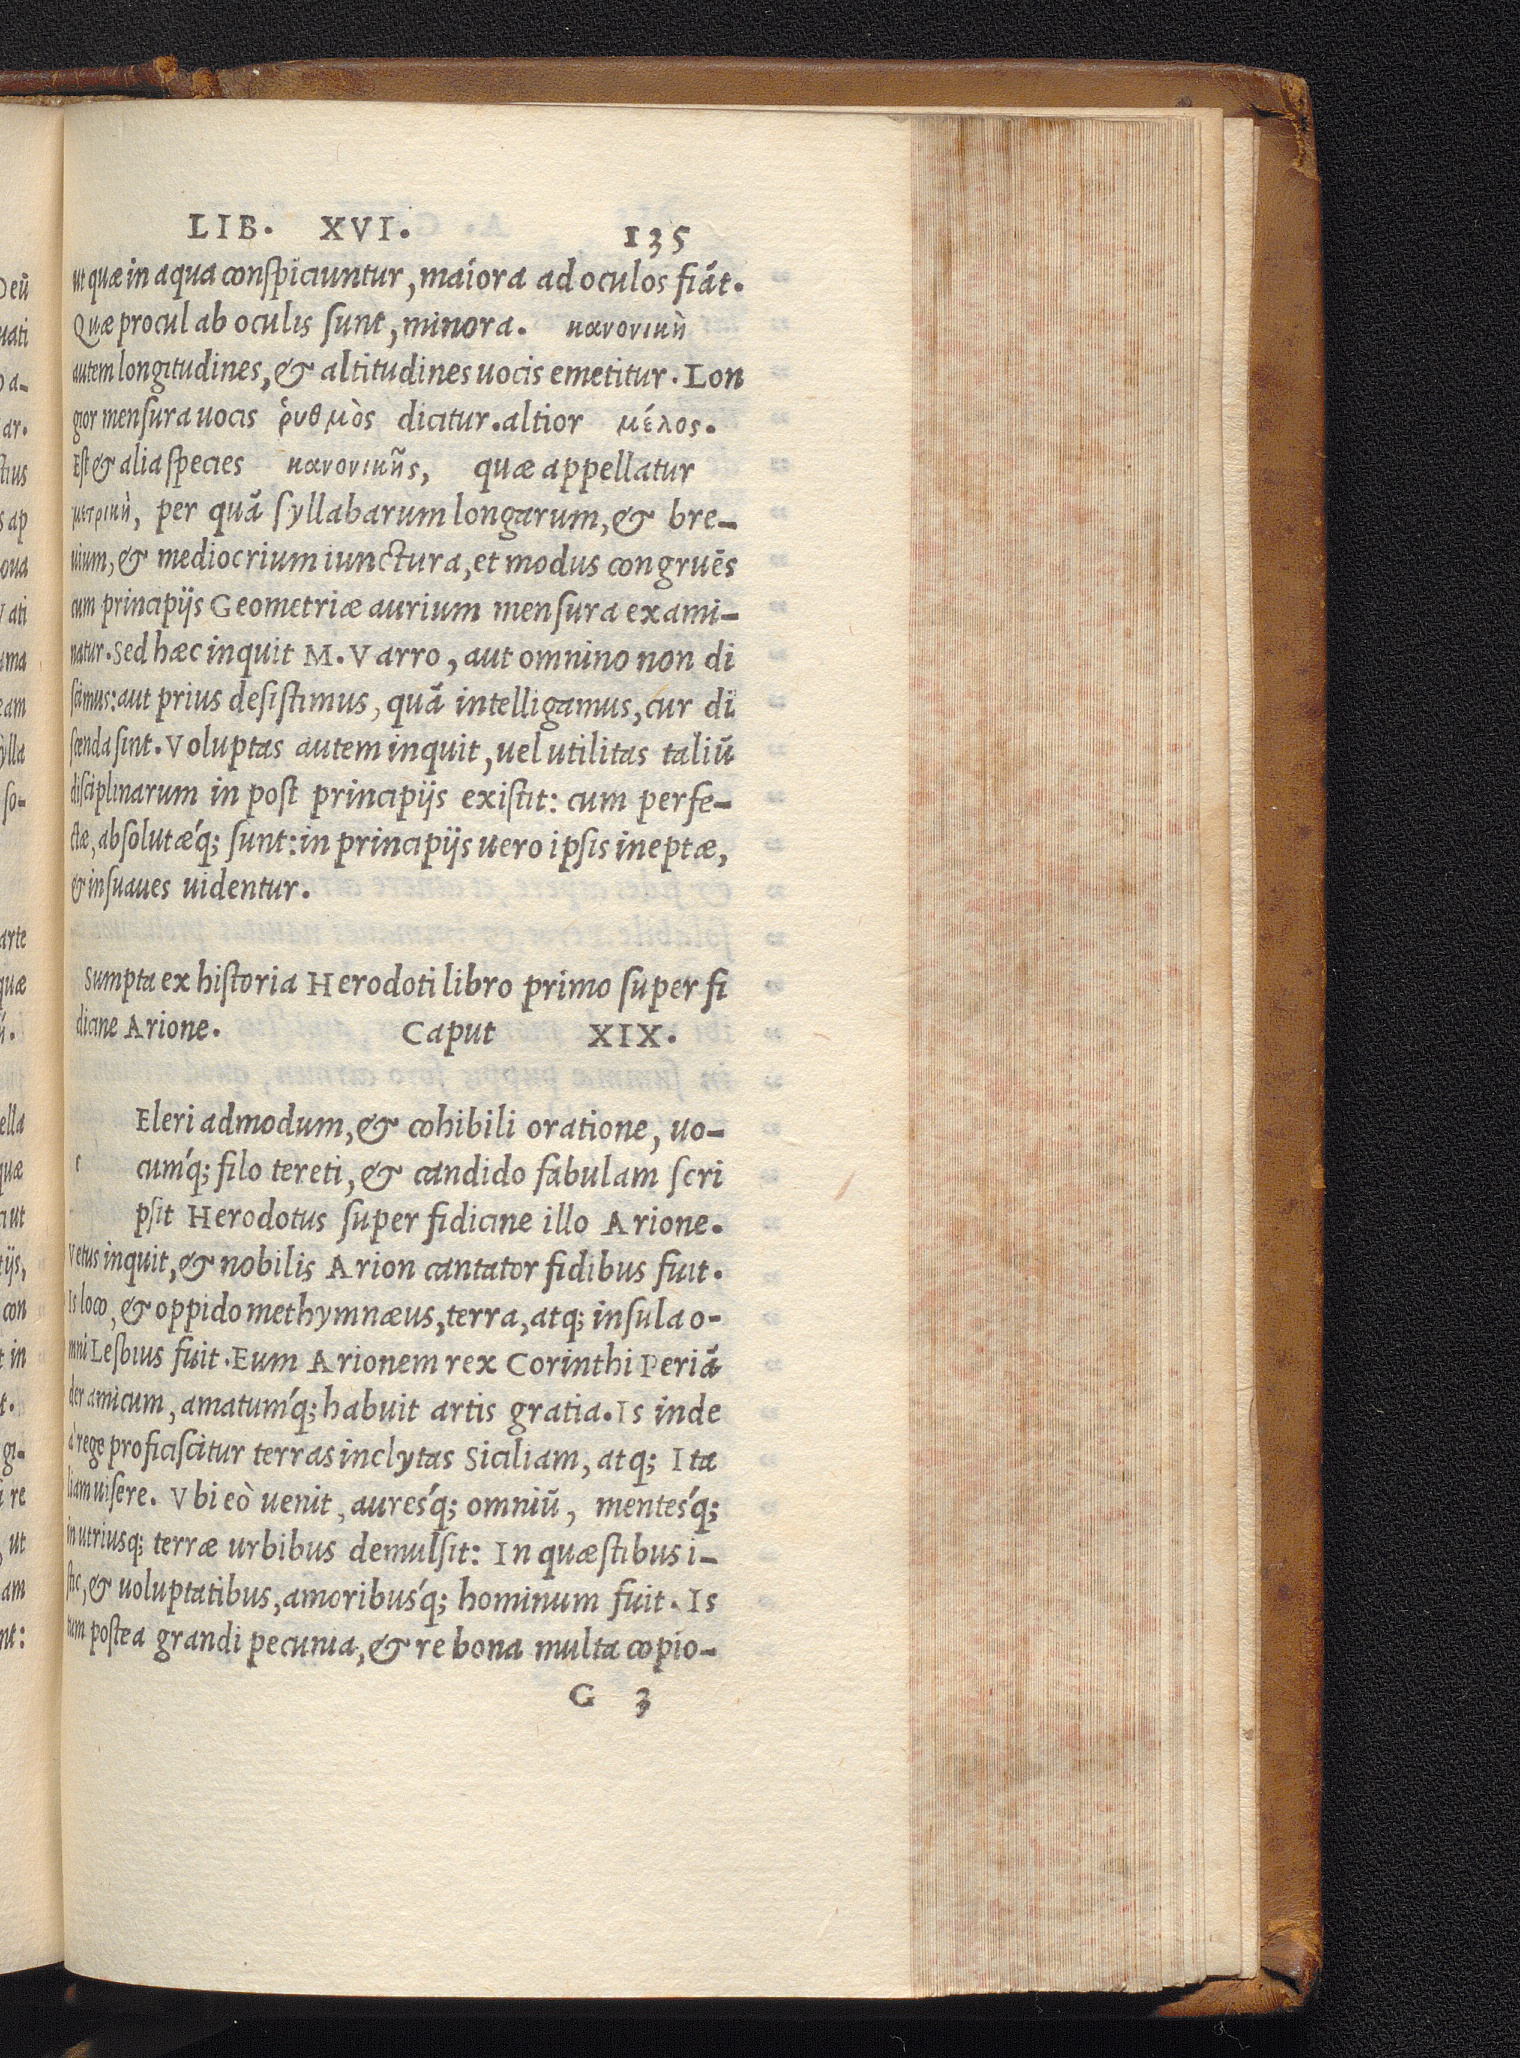 LIB. XVI. 135
ut quæ in aqua conspiciuntur, maiora ad oculos fiãt.
Quæ procul ab oculis sunt, minora. κανονικὴ
autem longitudines, & altitudines uocis emetitur. Lon
gior mensura uocis ῥυθμὸς dicitur. altior μέλος.
Est & alia species κανονικῆς, quæ appellatur
μετρικὴ, per quã syllabarum longarum, & bre-
uium, & mediocrium iunctura, et modus congruẽs
cum principijs Geometriæ aurium mensura exami-
natur. Sed hæc inquit M. Varro, aut omnino non di
scimus: aut prius desistimus, quã intelligamus, cur di
scenda sint. Voluptas autem inquit, uel utilitas taliũ
disciplinarum in post principijs existit: cum perfe-
ctæ, absolutæq́; sunt: in principijs uero ipsis ineptæ,
& insuaues uidentur.
Sumpta ex historia Herodoti libro primo super fi
dicine Arione. Caput XIX.
Eleri admodum, & cohibili oratione, uo-
c cumq́; filo tereti, & candido fabulam scri
psit Herodotus super fidicine illo Arione.
Vetus inquit, & nobilis Arion cantator fidibus fuit.
Is loco, & oppido methymnæus, terra, atq; insula o-
mni Lesbius fuit. Eum Arionem rex Corinthi Periã
der amicum, amatumq́; habuit artis gratia. Is inde
à rege proficiscitur terras inclytas Siciliam, atq; Ita
liam uisere. Vbi eò uenit, auresq́; omniũ, mentesq́;
in utriusq; terræ urbibus demulsit: In quæstibus i-
stic, & uoluptatibus, amoribusq́; hominum fuit. Is
tum postea grandi pecunia, & re bona multa copio-
G 3